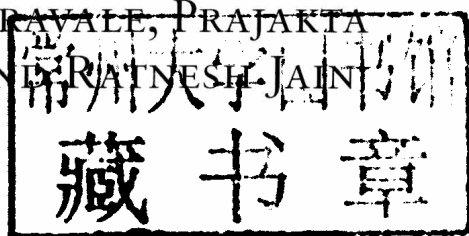 RAVALE, PRAJAKTA
ND RATNESH JAIN
常州大学图书馆
藏书章